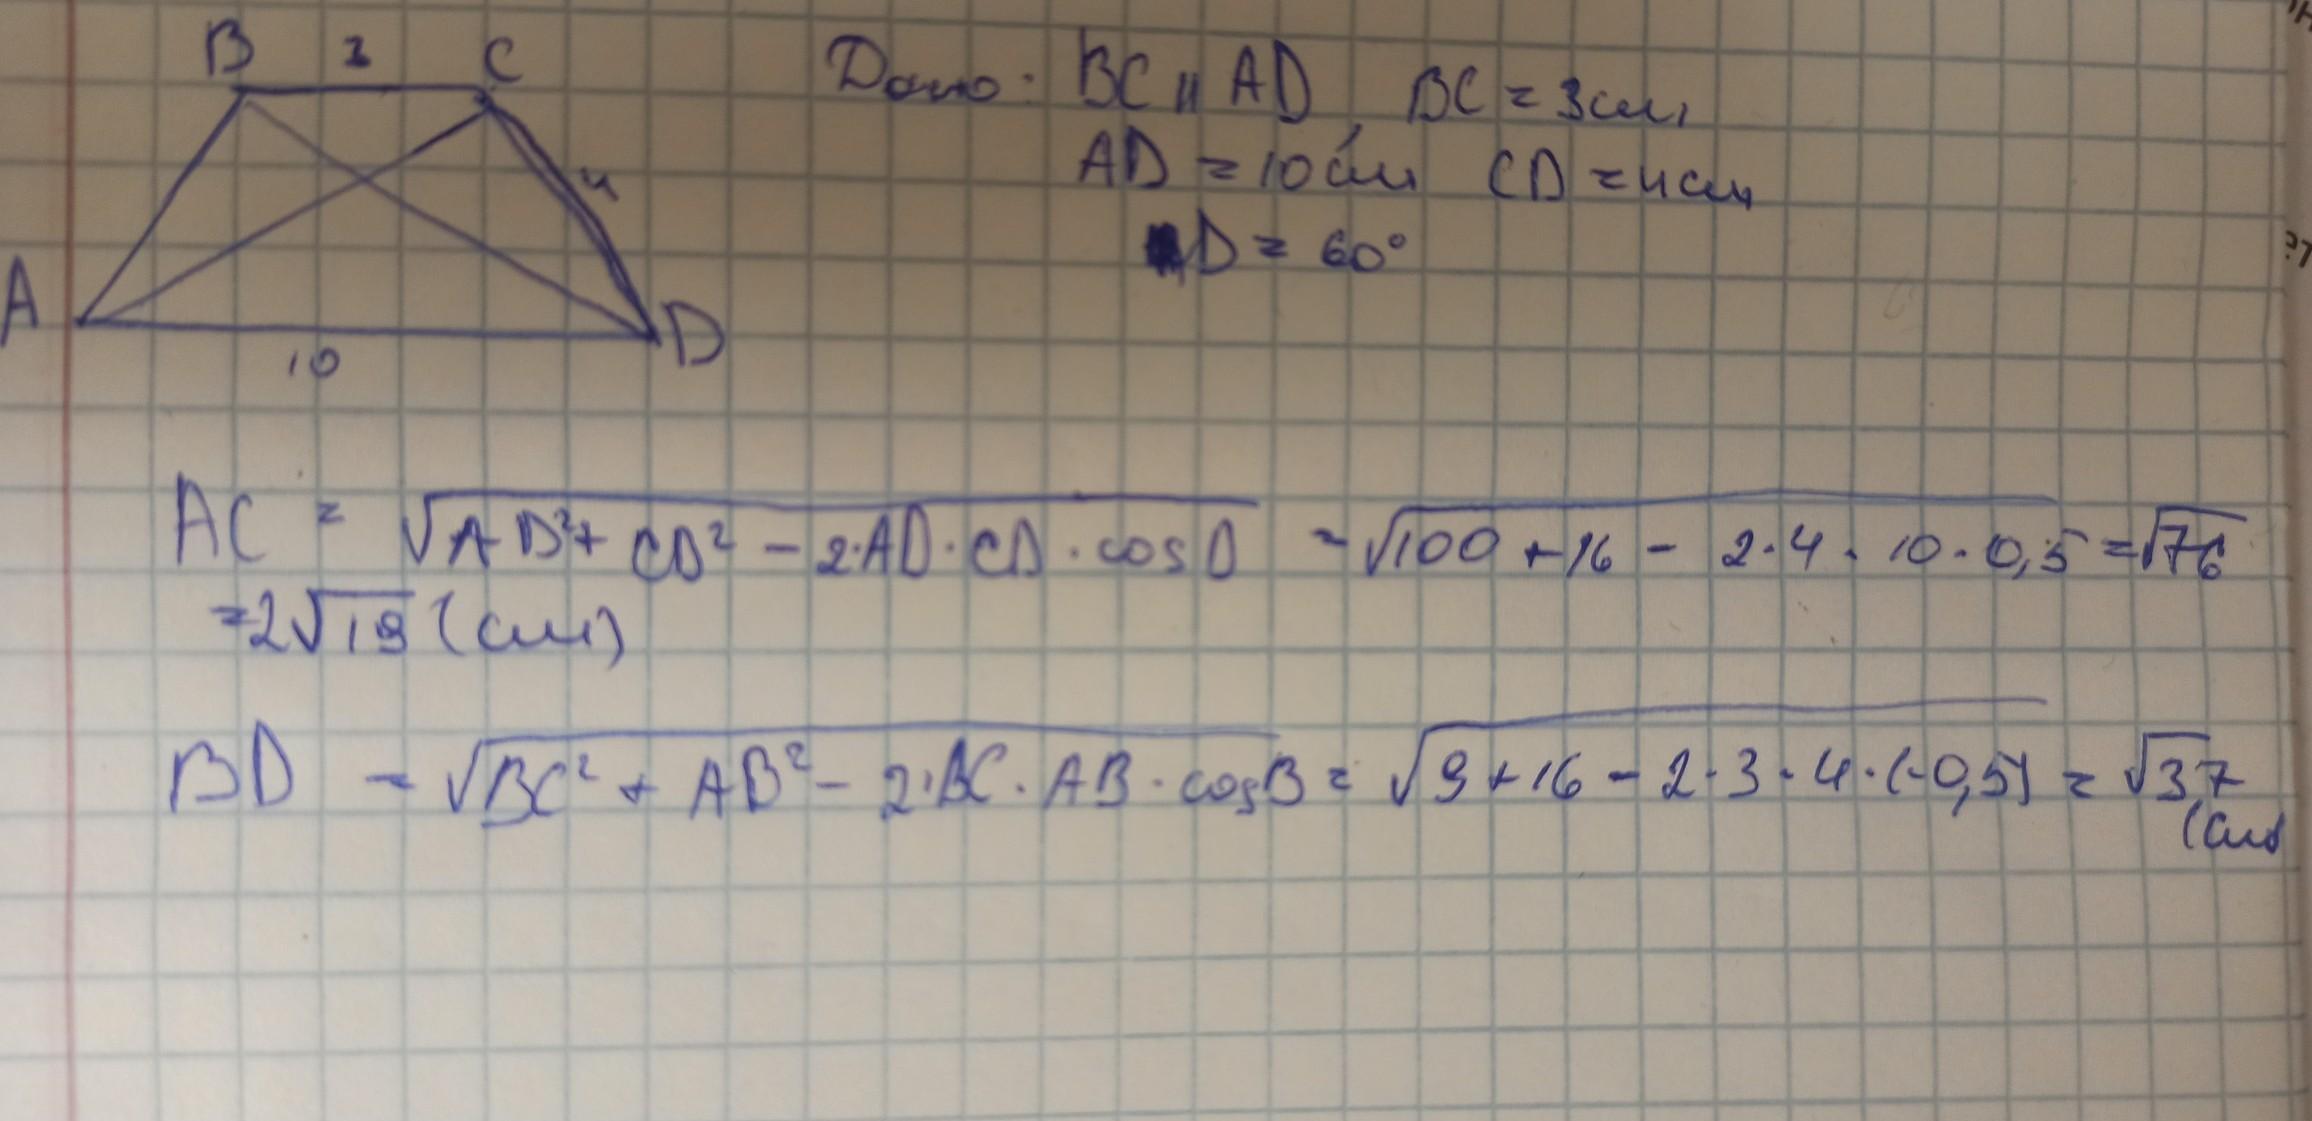 B 3 C
Дано: BC || AD, BC = 3см,
AD = 10 см CD = 4см
4
D = 60°
A D
10
AC = √AD² + CD² - 2·AD·CD·cosD = √100 + 16 - 2·4·10·0,5 = √76
= 2√19 (см)
BD = √BC² + AB² - 2·BC·AB·cosB = √9 + 16 - 2·3·4·(-0,5) = √37
(см)